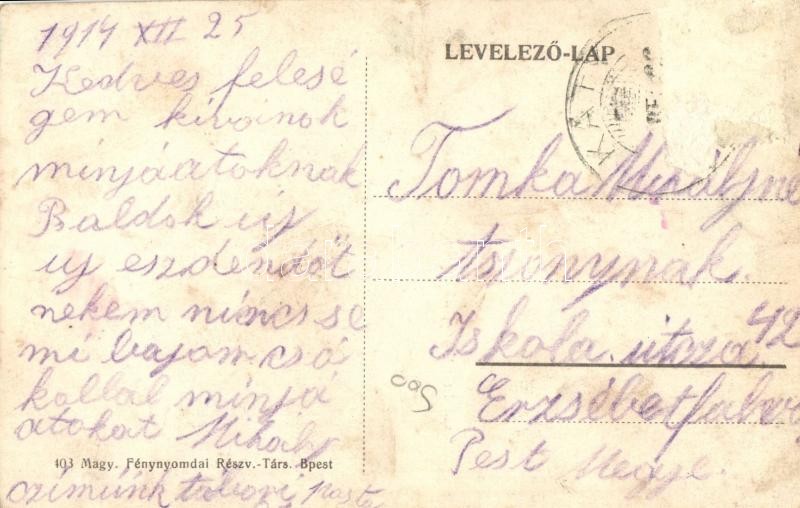 1914 XII 25
Kedves felesé
gem kivánok
minjáatoknak
Baldok új
uj eszdendőt
nekem nincs se
mi bajom csó
kollal minjá
atokat Mihály
czimünk tábori Posta
403 Magy. Fénynyomdai Részv.-Társ. Bpest
LEVELEZŐ-LAP
KÁT
Tomka Mihályné
tsionynak.
Iskola utcza 42
Erzsébetfalva
Pest Megye.
500